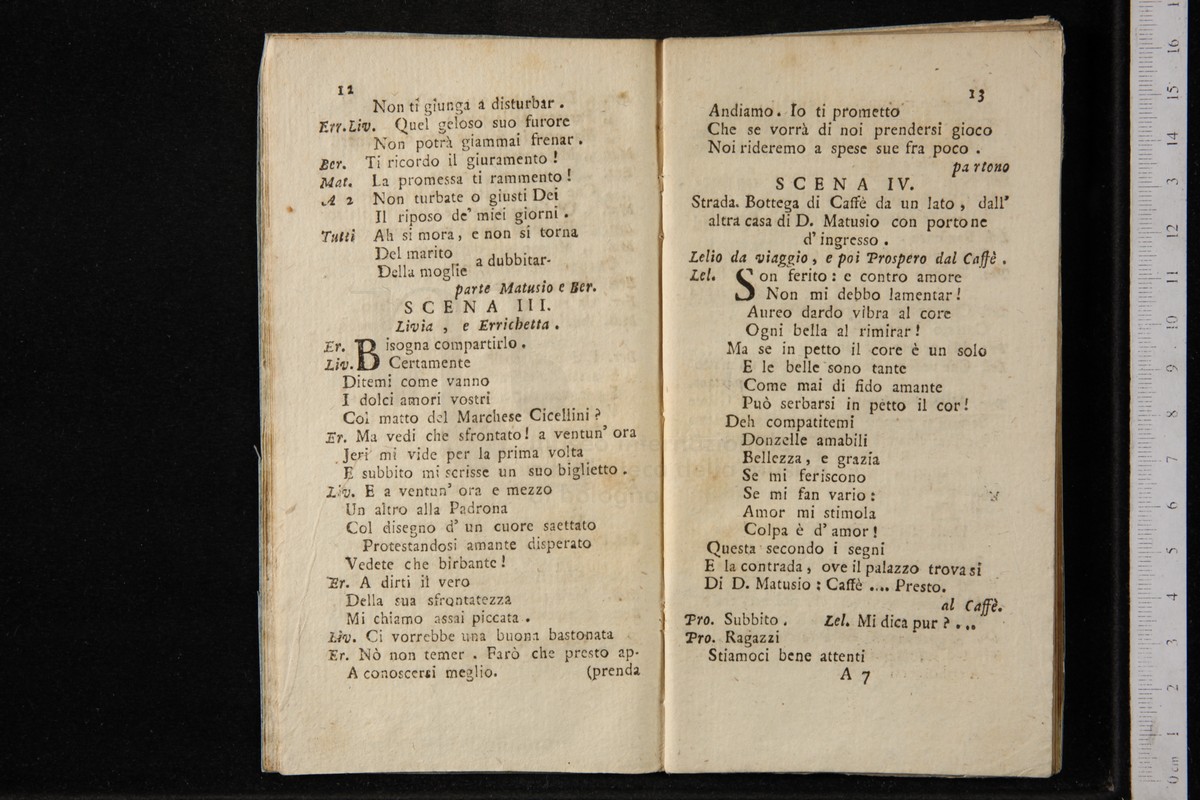 12
Non ti giunga a disturbar .
Err. Liv. Quel geloso suo furore
Non potrà giammai frenar .
Ber. Ti ricordo il giuramento !
Mat. La promessa ti rammento !
A 2 Non turbate o giusti Dei
Il riposo de' miei giorni .
Tutti Ah si mora , e non si torna
Del marito
a dubbitar-
Della moglie
parte Matusio e Ber.
SCENA III.
Livia , e Errichetta .
Er. Bisogna compartirlo .
Liv. Certamente
Ditemi come vanno
I dolci amori vostri
Col matto del Marchese Cicellini ?
Er. Ma vedi che sfrontato ! a ventun' ora
Jeri mi vide per la prima volta
E subbito mi scrisse un suo biglietto .
Liv. E a ventun' ora e mezzo
Un altro alla Padrona
Col disegno d' un cuore saettato
Protestandosi amante disperato
Vedete che birbante !
Er. A dirti il vero
Della sua sfrontatezza
Mi chiamo assai piccata .
Liv. Ci vorrebbe una buona bastonata
Er. Nò non temer . Farò che presto ap-
A conoscersi meglio. (prenda
13
Andiamo. Io ti prometto
Che se vorrà di noi prendersi gioco
Noi rideremo a spese sue fra poco .
partono
SCENA IV.
Strada. Bottega di Caffè da un lato , dall'
altra casa di D. Matusio con portone
d' ingresso .
Lelio da viaggio , e poi Prospero dal Caffè .
Lel. Son ferito : e contro amore
Non mi debbo lamentar !
Aureo dardo vibra al core
Ogni bella al rimirar !
Ma se in petto il core è un solo
E le belle sono tante
Come mai di fido amante
Può serbarsi in petto il cor !
Deh compatitemi
Donzelle amabili
Bellezza , e grazia
Se mi feriscono
Se mi fan vario :
Amor mi stimola
Colpa è d' amor !
Questa secondo i segni
E la contrada , ove il palazzo trovasi
Di D. Matusio : Caffè .... Presto.
al Caffè.
Pro. Subbito . Lel. Mi dica pur ? ...
Pro. Ragazzi
Stiamoci bene attenti
A 7